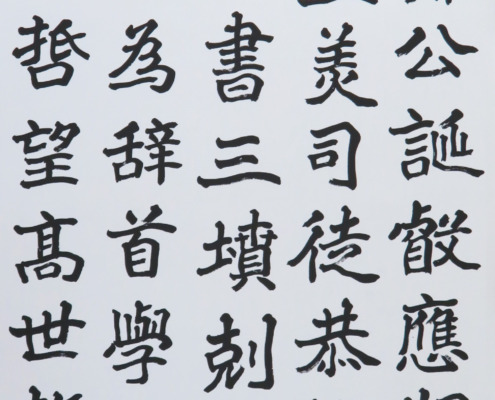 公誕叡應
羨司徒恭
書三墳剋
為辞首學
哲望高世